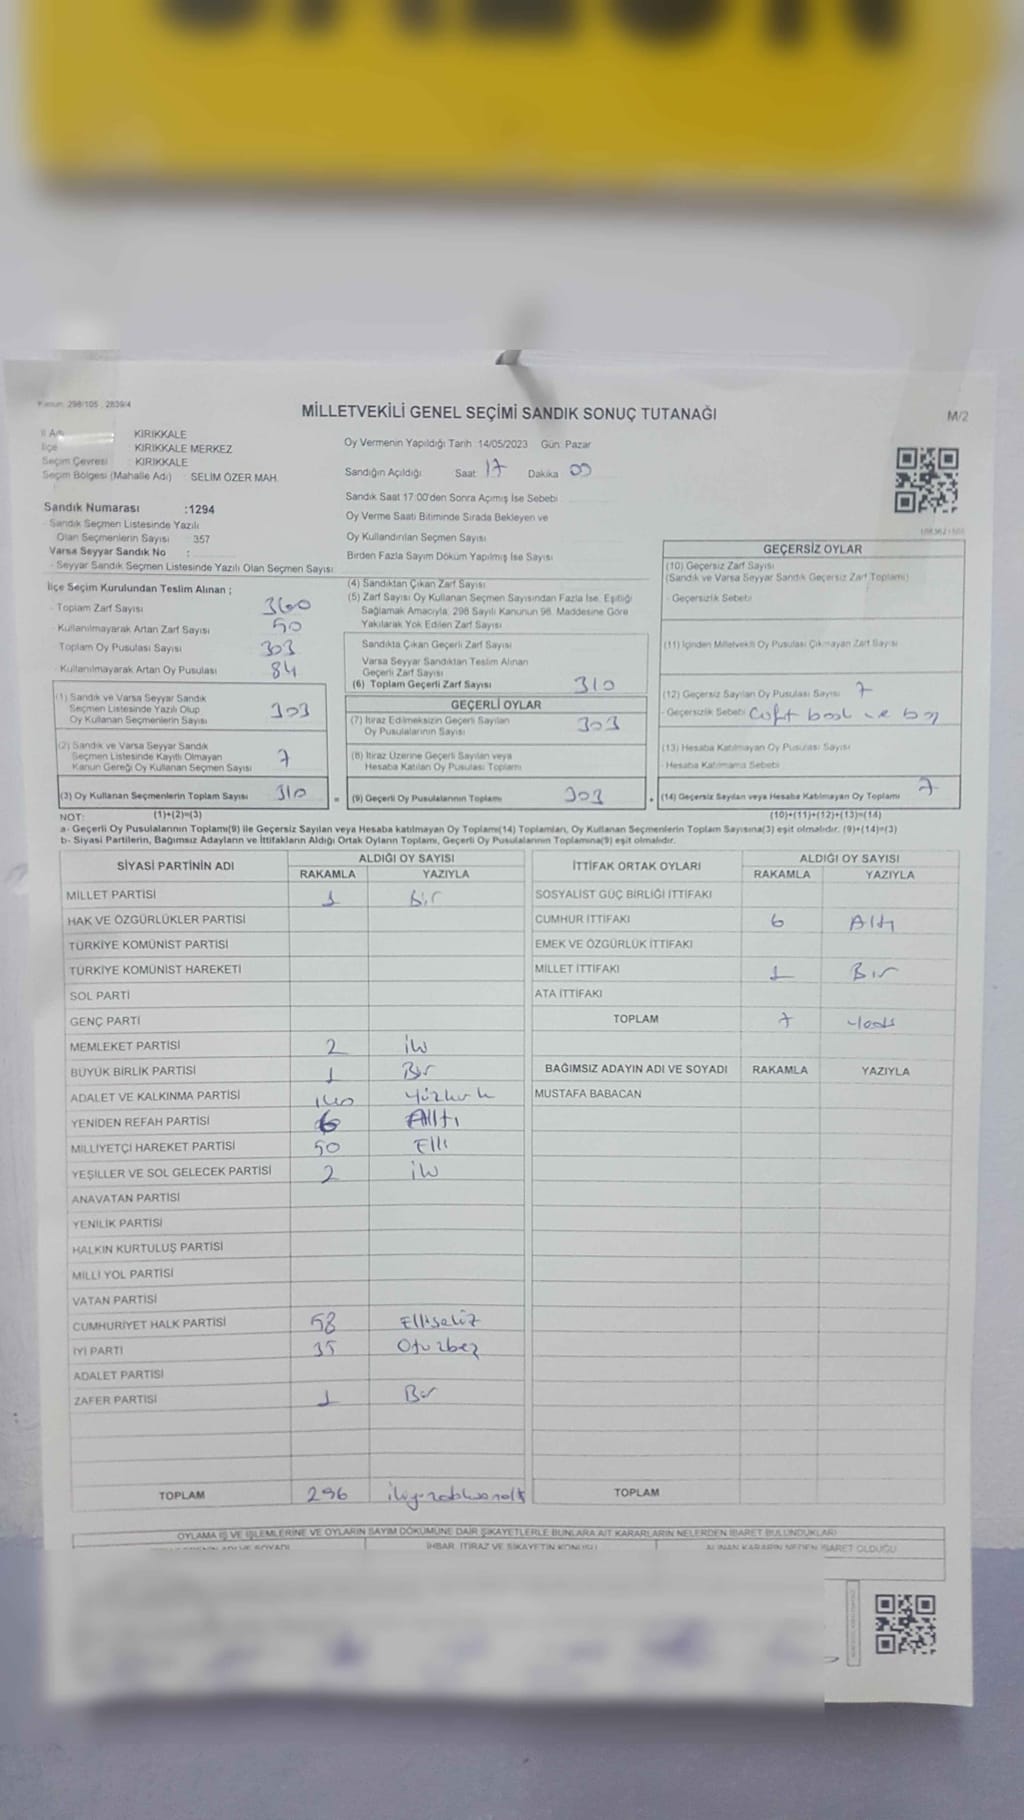 Kanun: 298/105 , 2839/4
MİLLETVEKİLİ GENEL SEÇİMİ SANDIK SONUÇ TUTANAĞI
M/2
İl Adı
KIRIKKALE
İlçe
KIRIKKALE MERKEZ
Seçim Çevresi : KIRIKKALE
Seçim Bölgesi (Mahalle Adı) : SELİM ÖZER MAH.
Oy Vermenin Yapıldığı Tarih :14/05/2023 Gün: Pazar
Sandığın Açıldığı Saat: 17 Dakika 00
Sandık Saat 17:00'den Sonra Açımış İse Sebebi
Oy Verme Saati Bitiminde Sırada Bekleyen ve
Oy Kullandırılan Seçmen Sayısı
Birden Fazla Sayım Döküm Yapılmış İse Sayısı
Sandık Numarası :1294
- Sandık Seçmen Listesinde Yazılı
Olan Seçmenlerin Sayısı : 357
Varsa Seyyar Sandık No :
- Seyyar Sandık Seçmen Listesinde Yazılı Olan Seçmen Sayısı
İlçe Seçim Kurulundan Teslim Alınan ;
- Toplam Zarf Sayısı 360
- Kullanılmayarak Artan Zarf Sayısı 50
Toplam Oy Pusulası Sayısı 303
- Kullanılmayarak Artan Oy Pusulası 84
(1) Sandık ve Varsa Seyyar Sandık
Seçmen Listesinde Yazılı Olup
Oy Kullanan Seçmenlerin Sayısı 303
(2) Sandık ve Varsa Seyyar Sandık
Seçmen Listesinde Kayıtlı Olmayan
Kanun Gereği Oy Kullanan Seçmen Sayısı 7
(3) Oy Kullanan Seçmenlerin Toplam Sayısı 310 =
(4) Sandıktan Çıkan Zarf Sayısı
(5) Zarf Sayısı Oy Kullanan Seçmen Sayısından Fazla İse, Eşitliği
Sağlamak Amacıyla, 298 Sayılı Kanunun 98. Maddesine Göre
Yakılarak Yok Edilen Zarf Sayısı
Sandıkta Çıkan Geçerli Zarf Sayısı
Varsa Seyyar Sandıktan Teslim Alınan
Geçerli Zarf Sayısı
(6) Toplam Geçerli Zarf Sayısı 310
GEÇERLİ OYLAR
(7) İtiraz Edilmeksizin Geçerli Sayılan
Oy Pusulalarının Sayısı 303
(8) İtiraz Üzerine Geçerli Sayılan veya
Hesaba Katılan Oy Pusulası Toplamı
(9) Geçerli Oy Pusulalarının Toplamı 303 +
GEÇERSİZ OYLAR
(10) Geçersiz Zarf Sayısı
(Sandık ve Varsa Seyyar Sandık Geçersiz Zarf Toplamı)
- Geçersizlik Sebebi
(11) İçinden Milletvekili Oy Pusulası Çıkmayan Zarf Sayısı
(12) Geçersiz Sayılan Oy Pusulası Sayısı 7
- Geçersizlik Sebebi Çift
(13) Hesaba Katılmayan Oy Pusulası Sayısı
- Hesaba Katılmama Sebebi
(14) Geçersiz Sayılan veya Hesaba Katılmayan Oy Toplamı 7
NOT: (1)+(2)=(3)
(10)+(11)+(12)+(13)=(14)
a- Geçerli Oy Pusulalarının Toplamı(9) ile Geçersiz Sayılan veya Hesaba katılmayan Oy Toplamı(14) Toplamları, Oy Kullanan Seçmenlerin Toplam Sayısına(3) eşit olmalıdır. (9)+(14)=(3)
b- Siyasi Partilerin, Bağımsız Adayların ve İttifakların Aldığı Ortak Oyların Toplamı, Geçerli Oy Pusulalarının Toplamına(9) eşit olmalıdır.
SİYASİ PARTİNİN ADI
ALDIĞI OY SAYISI
RAKAMLA YAZIYLA
MİLLET PARTİSİ 1 Bir
HAK VE ÖZGÜRLÜKLER PARTİSİ
TÜRKİYE KOMÜNİST PARTİSİ
TÜRKİYE KOMÜNİST HAREKETİ
SOL PARTİ
GENÇ PARTİ
MEMLEKET PARTİSİ 2 iki
BÜYÜK BİRLİK PARTİSİ 1 Bir
ADALET VE KALKINMA PARTİSİ 140 Yüzkırk
YENİDEN REFAH PARTİSİ 6 Altı
MİLLİYETÇİ HAREKET PARTİSİ 50 Elli
YEŞİLLER VE SOL GELECEK PARTİSİ 2 iki
ANAVATAN PARTİSİ
YENİLİK PARTİSİ
HALKIN KURTULUŞ PARTİSİ
MİLLİ YOL PARTİSİ
VATAN PARTİSİ
CUMHURİYET HALK PARTİSİ 58 Ellisekiz
İYİ PARTİ 35 Otuzbeş
ADALET PARTİSİ
ZAFER PARTİSİ 1 Bir
TOPLAM 296 ikiyüzdoksanaltı
İTTİFAK ORTAK OYLARI
ALDIĞI OY SAYISI
RAKAMLA YAZIYLA
SOSYALİST GÜÇ BİRLİĞİ İTTİFAKI
CUMHUR İTTİFAKI 6 Altı
EMEK VE ÖZGÜRLÜK İTTİFAKI
MİLLET İTTİFAKI 1 Bir
ATA İTTİFAKI
TOPLAM 7 Yedi
BAĞIMSIZ ADAYIN ADI VE SOYADI RAKAMLA YAZIYLA
MUSTAFA BABACAN
TOPLAM
OYLAMA İŞ VE İŞLEMLERİNE VE OYLARIN SAYIM DÖKÜMÜNE DAİR ŞİKAYETLERLE BUNLARA AİT KARARLARIN NELERDEN İBARET BULUNDUKLARI
İHBAR, İTİRAZ VE ŞİKAYETİN KONUSU
ALINAN KARARIN NEDEN İBARET OLDUĞU